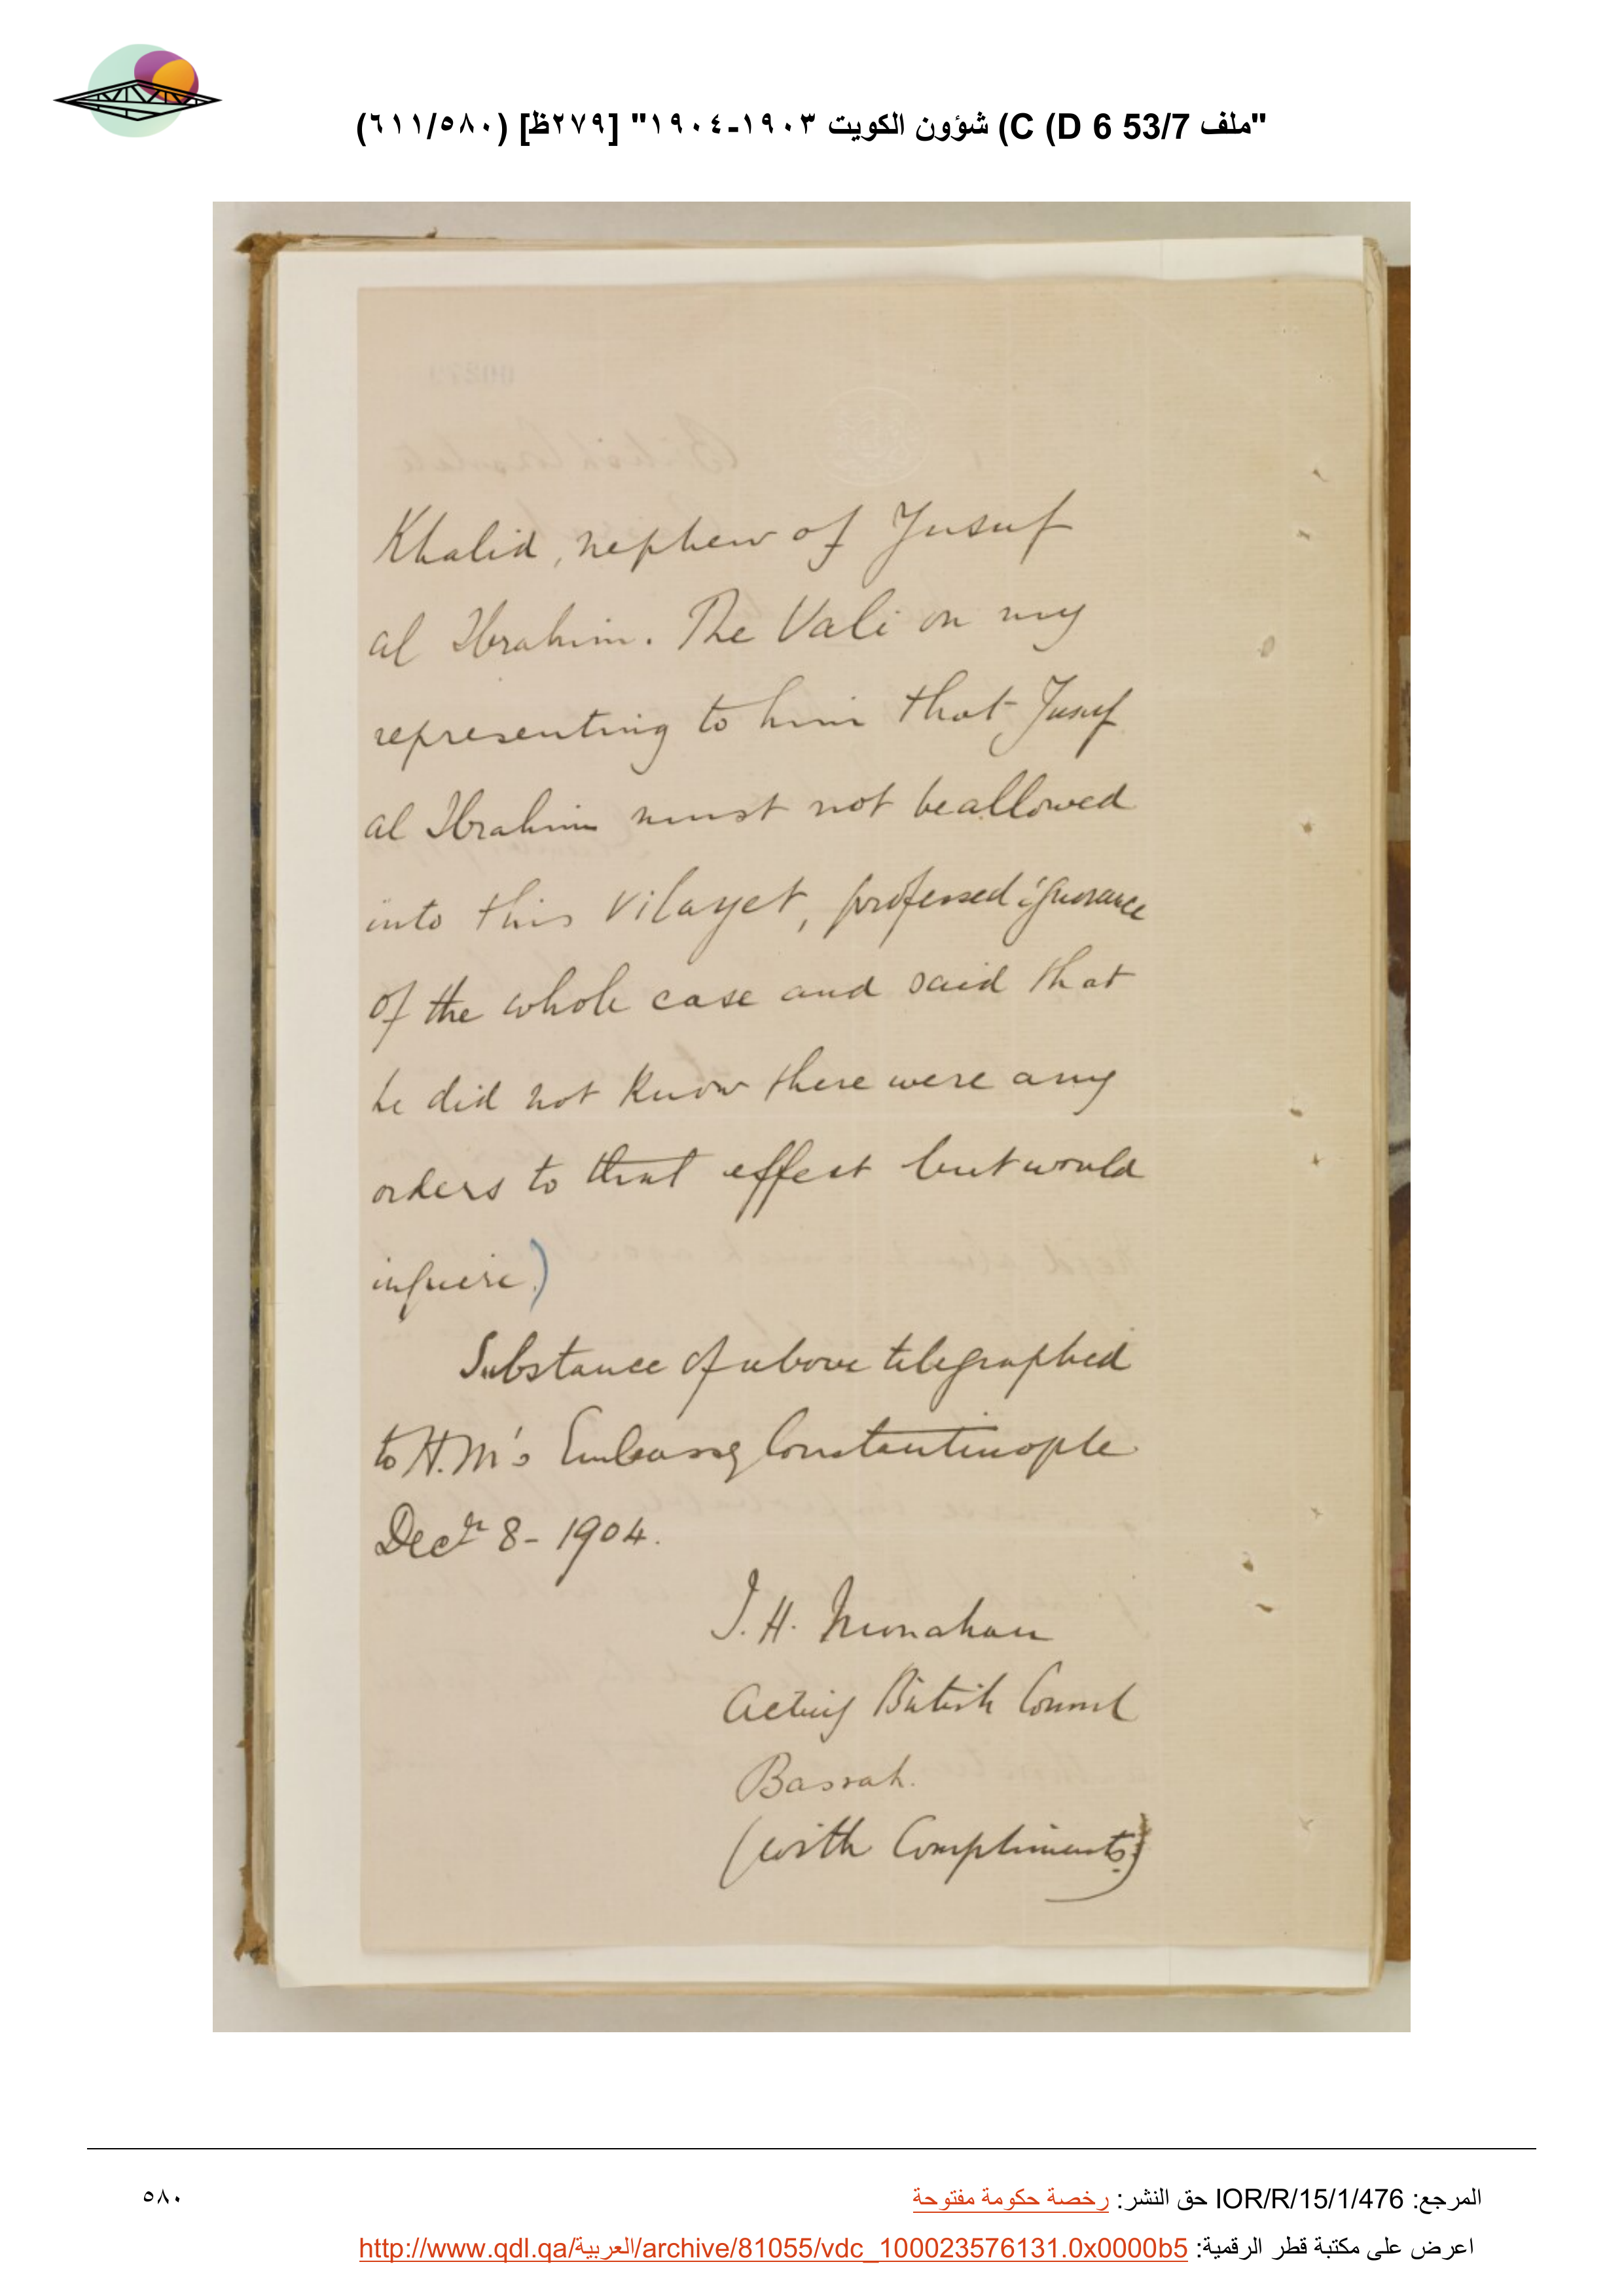 "ملف 53/7 C (D 6) شؤون الكويت ١٩٠٣-١٩٠٤" [٢٧٩ظ] (٦١١/٥٨٠)
Khalid, nephew of Yusuf
al Ibrahim. The Vali on my
representing to him that Yusuf
al Ibrahim must not be allowed
into this Vilayet, professed ignorance
of the whole case and said that
he did not know there were any
orders to that effect but would
inquire.)
Substance of above telegraphed
to H.M's Embassy Constantinople
Decr 8 - 1904.
J. H. Monahan
Acting British Consul
Basrah.
(with Compliments)
المرجع: IOR/R/15/1/476 حق النشر: رخصة حكومة مفتوحة
اعرض على مكتبة قطر الرقمية: http://www.qdl.qa/العربية/archive/81055/vdc_100023576131.0x0000b5
٥٨٠